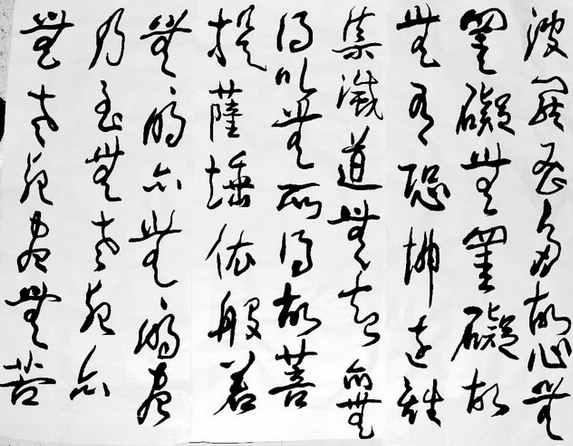 無明亦無明盡
乃至無老死亦
無老死盡無苦
集滅道無智亦無
得以無所得故菩
提薩埵依般若
波羅蜜多故心無
罣礙無罣礙故
無有恐怖遠離